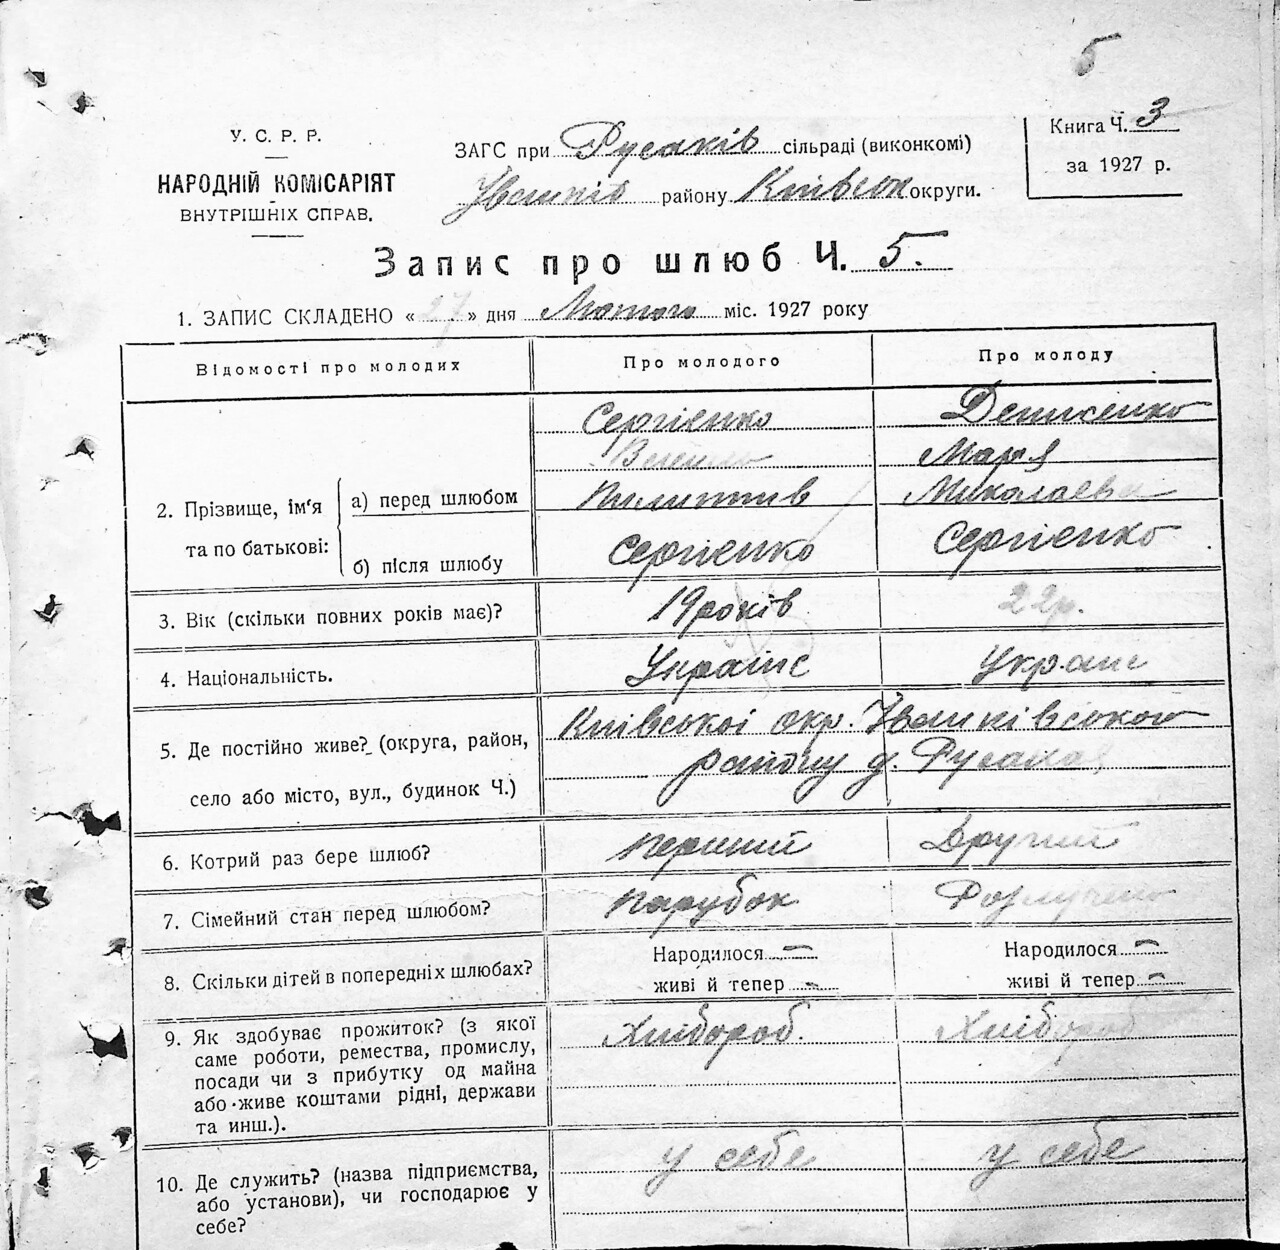 5
У. С. Р. Р.
НАРОДНІЙ КОМІСАРІЯТ
ВНУТРІШНІХ СПРАВ.
ЗАГС при Русаків сільраді (виконкомі)
Іванків району Київськ округи.
Книга Ч. 3
за 1927 р.
Запис про шлюб Ч. 5.
1. ЗАПИС СКЛАДЕНО « 27 » дня Лютого міс. 1927 року
Відомості про молодих
Про молодого
Про молоду
2. Прізвище, ім'я та по батькові:
а) перед шлюбом
Сергієнко
Пилипів
Денисенко
Марʼя
Миколаевна
б) після шлюбу
Сергієнко
Сергієнко
3. Вік (скільки повних років має)?
19 років
22 р.
4. Національність.
Украінс
Украінс
5. Де постійно живе? (округа, район,
село або місто, вул., будинок Ч.)
Київської окр. Іванківського
району д. Русаки
6. Котрий раз бере шлюб?
перший
Другий
7. Сімейний стан перед шлюбом?
парубок
8. Скільки дітей в попередніх шлюбах?
Народилося —
живі й тепер —
Народилося —
живі й тепер —
9. Як здобуває прожиток? (з якої
саме роботи, ремества, промислу,
посади чи з прибутку од майна
або живе коштами рідні, держави
та инш.).
Хлібороб.
Хлібороб
10. Де служить? (назва підприємства,
або установи), чи господарює у
себе?
у себе
у себе